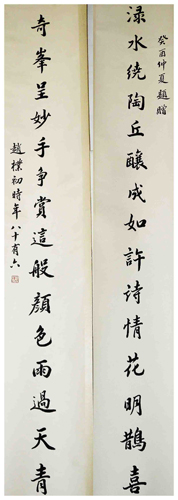 癸酉仲夏題贈
渌水绕陶丘釀成如許诗情花明鵲喜
奇峯呈妙手争賞這般顏色雨過天青
趙樸初時年八十有六